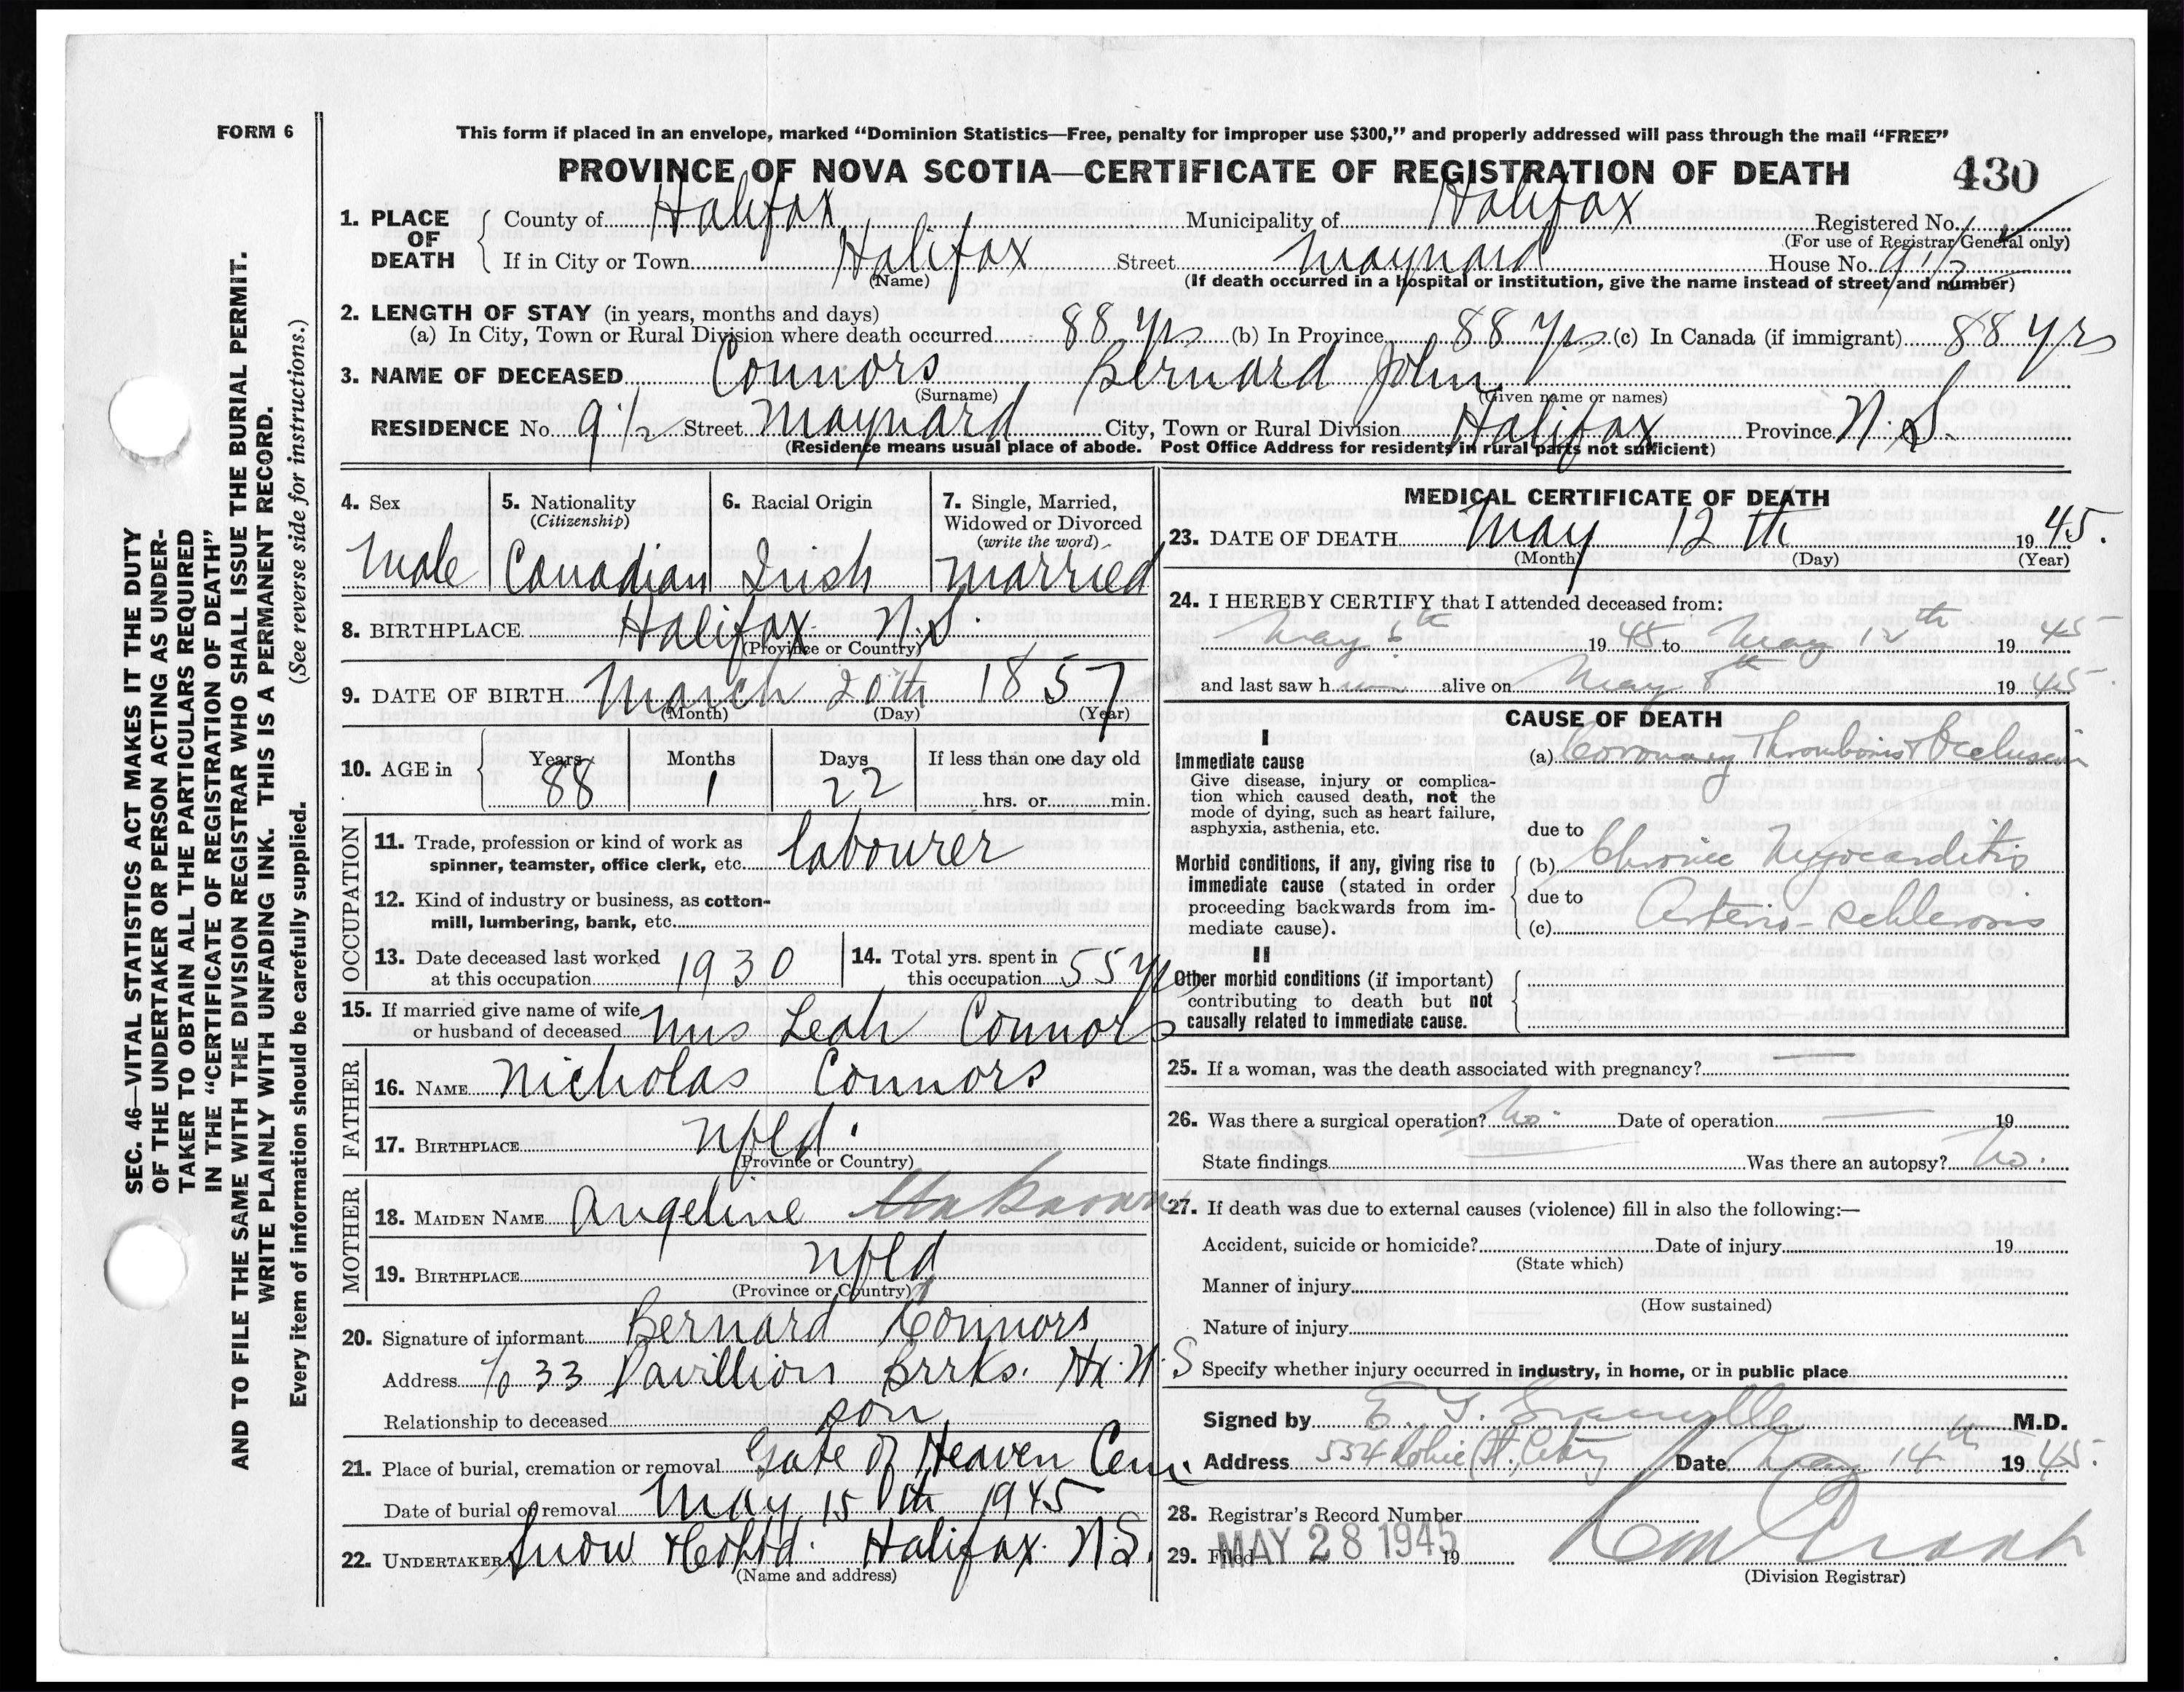 FORM 6
This form if placed in an envelope, marked “Dominion Statistics—Free, penalty for improper use $300,” and properly addressed will pass through the mail “FREE”
PROVINCE OF NOVA SCOTIA—CERTIFICATE OF REGISTRATION OF DEATH 430
1. PLACE OF DEATH County of Halifax Municipality of Halifax Registered No.
(For use of Registrar General only)
If in City or Town Halifax Street Maynard House No. 9 1/2
(Name) (If death occurred in a hospital or institution, give the name instead of street and number)
2. LENGTH OF STAY (in years, months and days)
(a) In City, Town or Rural Division where death occurred 88 yrs (b) In Province 88 yrs (c) In Canada (if immigrant) 88 yrs
3. NAME OF DECEASED Connors Bernard John
(Surname) (Given name or names)
RESIDENCE No. 9 1/2 Street Maynard City, Town or Rural Division Halifax Province N S.
(Residence means usual place of abode. Post Office Address for residents in rural parts not sufficient)
4. Sex 5. Nationality (Citizenship) 6. Racial Origin 7. Single, Married, Widowed or Divorced (write the word)
Male Canadian Irish Married
8. BIRTHPLACE Halifax N.S.
(Province or Country)
9. DATE OF BIRTH March 20th 1857
(Month) (Day) (Year)
10. AGE in Years Months Days If less than one day old
88 1 22 hrs. or min.
OCCUPATION
11. Trade, profession or kind of work as
spinner, teamster, office clerk, etc. labourer
12. Kind of industry or business, as cotton-
mill, lumbering, bank, etc.
13. Date deceased last worked
at this occupation 1930
14. Total yrs. spent in
this occupation 55 yrs
15. If married give name of wife
or husband of deceased Mrs Leah Connors
FATHER
16. NAME Nicholas Connors
17. BIRTHPLACE Nfld.
(Province or Country)
MOTHER
18. MAIDEN NAME Angeline Unknown
19. BIRTHPLACE Nfld
(Province or Country)
20. Signature of informant Bernard Connors
Address c/o 33 Pavillion Brrks. Hx. N.S
Relationship to deceased son
21. Place of burial, cremation or removal Gate of Heaven Cem.
Date of burial or removal May 15th 1945
22. UNDERTAKER Snow & Co Ltd. Halifax. N.S.
(Name and address)
MEDICAL CERTIFICATE OF DEATH
23. DATE OF DEATH May 12th 1945.
(Month) (Day) (Year)
24. I HEREBY CERTIFY that I attended deceased from:
May 1945 to May 12th 1945
and last saw h alive on May 8th 1945.
CAUSE OF DEATH
I
Immediate cause
Give disease, injury or complica-
tion which caused death, not the
mode of dying, such as heart failure,
asphyxia, asthenia, etc.
(a) Coronary Thrombosis & Occlusion
due to
Morbid conditions, if any, giving rise to
immediate cause (stated in order
proceeding backwards from im-
mediate cause).
(b) Chronic Myocarditis
due to
(c) Arterio-schlerosis
II
Other morbid conditions (if important)
contributing to death but not
causally related to immediate cause.
25. If a woman, was the death associated with pregnancy? —
26. Was there a surgical operation? No. Date of operation — 19
State findings Was there an autopsy? No.
27. If death was due to external causes (violence) fill in also the following:—
Accident, suicide or homicide? Date of injury 19
(State which)
Manner of injury
(How sustained)
Nature of injury
Specify whether injury occurred in industry, in home, or in public place
Signed by E. M.D.
Address 554 Robie St., City Date May 14th 1945.
28. Registrar's Record Number
29. Filed MAY 28 1945 19
(Division Registrar)
SEC. 46—VITAL STATISTICS ACT MAKES IT THE DUTY
OF THE UNDERTAKER OR PERSON ACTING AS UNDER-
TAKER TO OBTAIN ALL THE PARTICULARS REQUIRED
IN THE “CERTIFICATE OF REGISTRATION OF DEATH”
AND TO FILE THE SAME WITH THE DIVISION REGISTRAR WHO SHALL ISSUE THE BURIAL PERMIT.
WRITE PLAINLY WITH UNFADING INK. THIS IS A PERMANENT RECORD.
Every item of information should be carefully supplied. (See reverse side for instructions.)